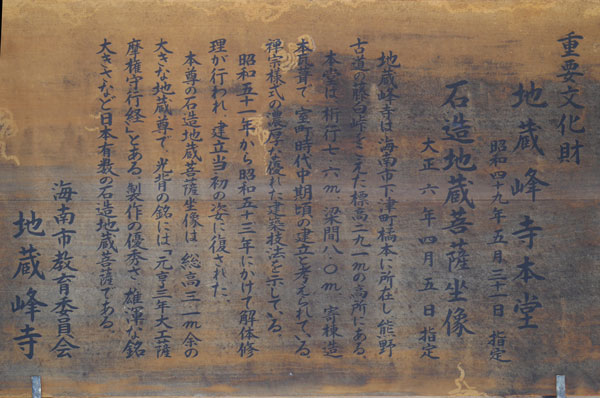 重要文化財
地蔵峰寺本堂
昭和四十九年五月二十一日 指定
石造地蔵菩薩坐像
大正六年四月五日 指定
地蔵峰寺は海南市下津町橘本に所在し、熊野
古道の藤白峠をこえた標高二九一mの高所にある。
本堂は、桁行七・六m、梁間八・〇m、寄棟造
本瓦葺で、室町時代中期頃の建立と考えられている。
禅宗様式の濃厚な優れた建築技法を示している。
昭和五十一年から昭和五十三年にかけて解体修
理が行われ、建立当初の姿に復された。
本尊の石造地蔵菩薩坐像は、総高三・一m余の
大きな地蔵尊で、光背の銘には「元亨三年大工薩
摩権守行経」とある。製作の優秀さ、雄渾な銘
大きさなど日本有数の石造地蔵菩薩である。
海南市教育委員会
地蔵峰寺